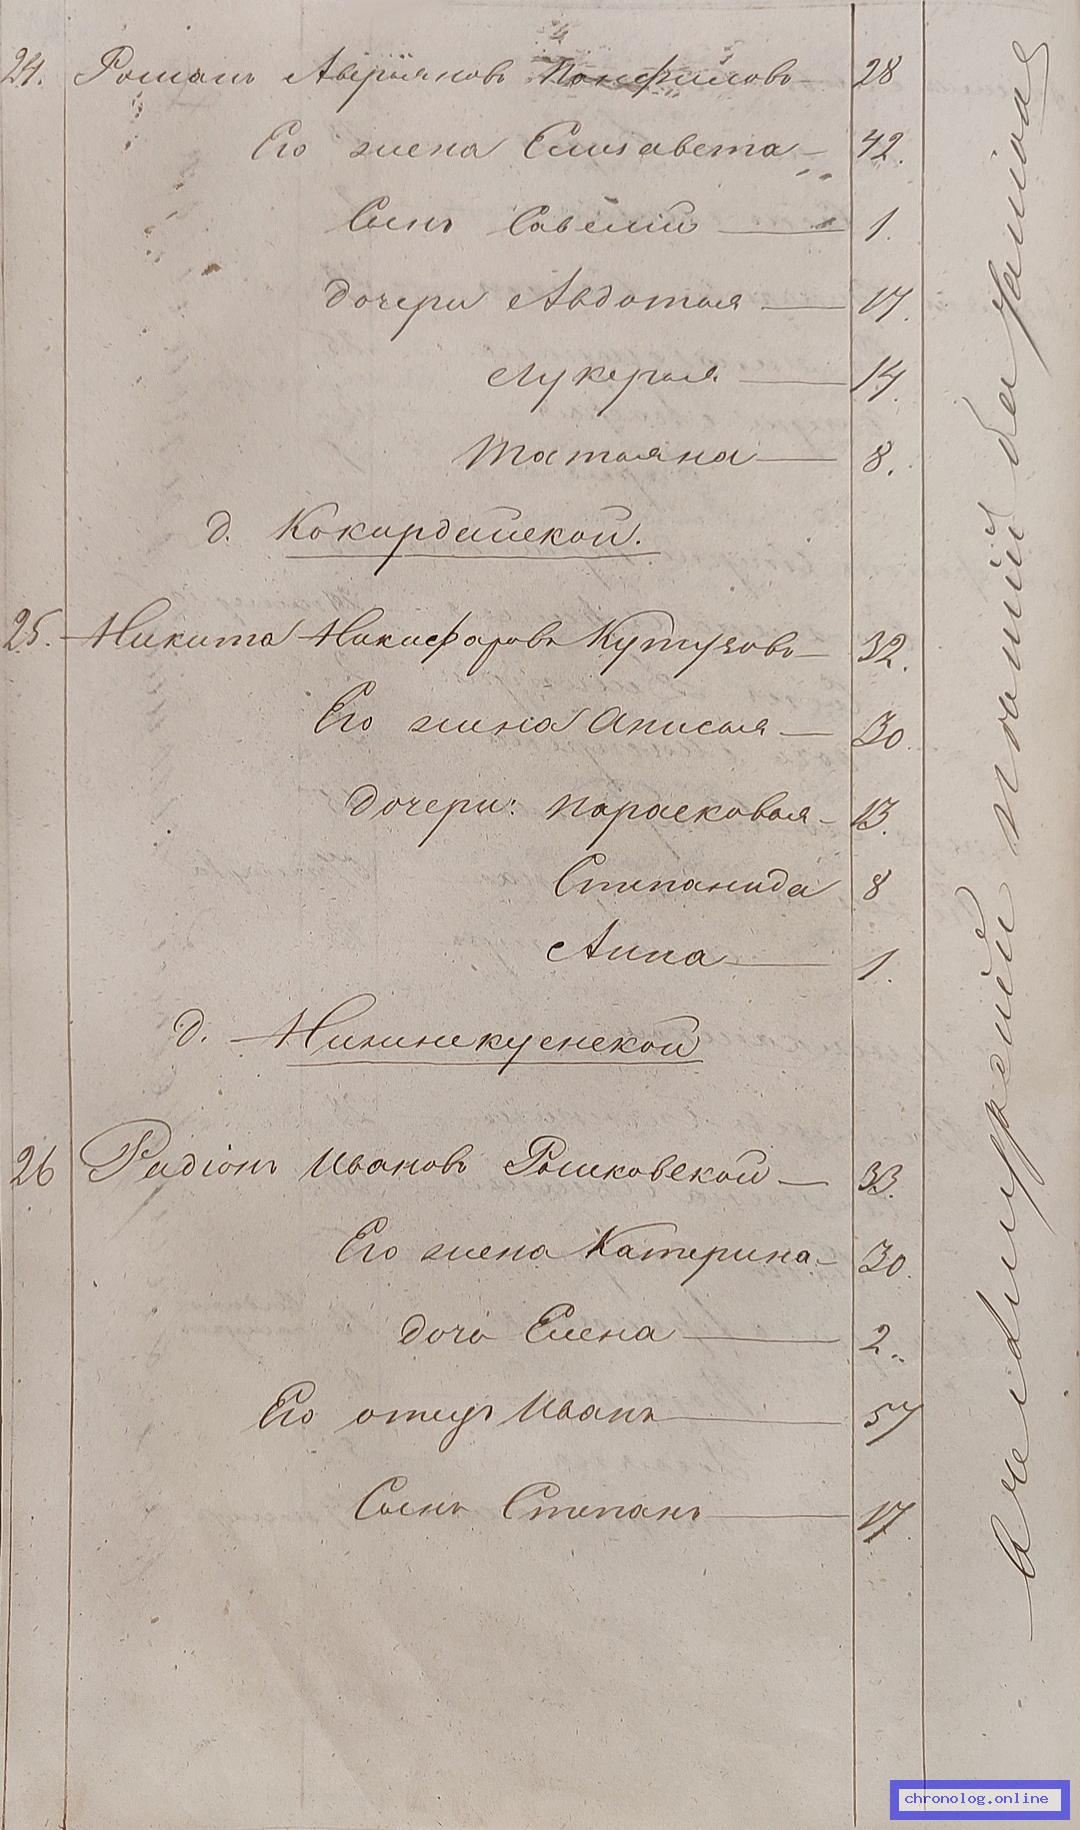 24. Романъ Аверьяновъ Панфиловъ 28
Его жена Елисавета 42.
Сынъ Савелий 1.
Дочери Авдотья 17.
Лукерья 14.
Татьяна 8.
д. Кокирдейской.
25. Никита Никифоровъ Кутузовъ 32.
Его жена Анисья 30.
Дочери: Парасковья 13.
Степанида 8
Анна 1.
д.
26 Радіонъ Ивановъ 33.
Его жена Катерина 30.
дочь Елена 2.
Его отецъ Иванъ 57
Сынъ Степанъ 17.
chronolog.online